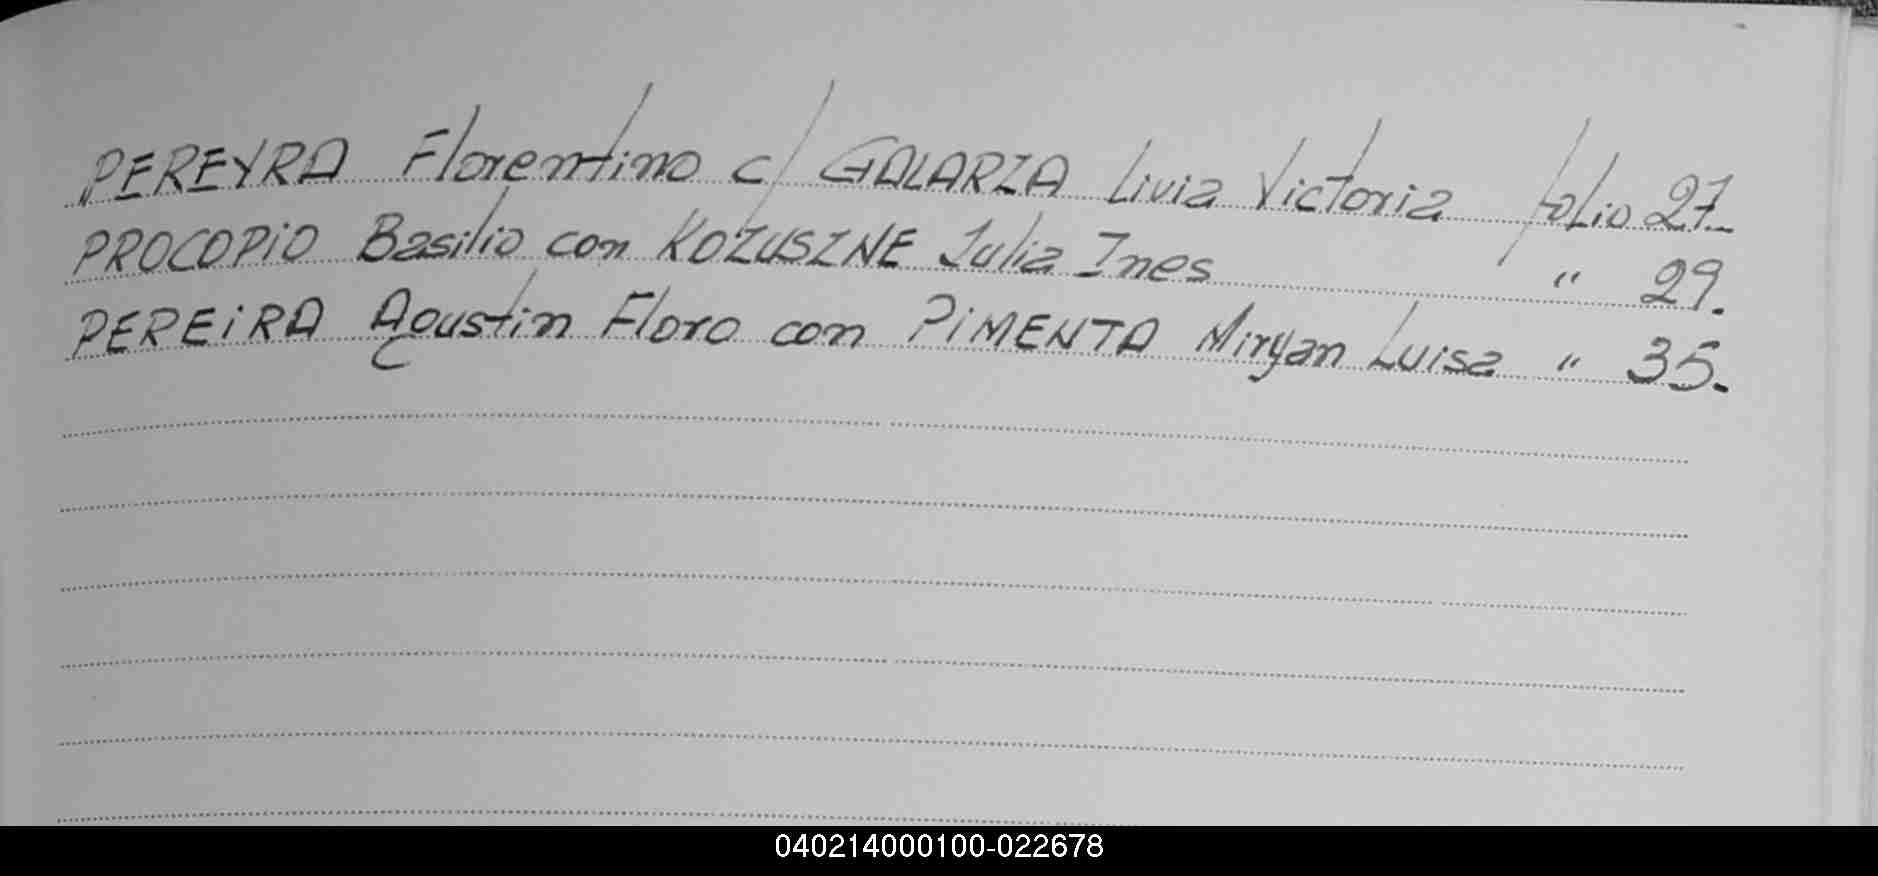 PEREYRA Florentino c/ GALARZA Livia Victoria folio 27.
PROCOPIO Basilio con KOZUSZNE Julia Ines " 29.
PEREIRA Agustin Floro con PIMENTA Miryan Luisa " 35.
040214000100-022678